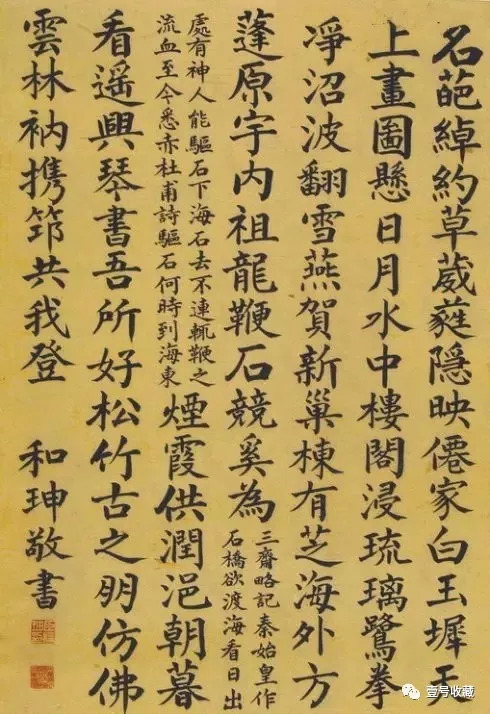 名葩綽約草葳蕤隱映僊家白玉墀天
上畫圖懸日月水中樓閣浸琉璃鷺拳
凈沼波翻雪燕賀新巢棟有芝海外方
蓬原宇內祖龍鞭石競奚為
三齋略記秦始皇作
石橋欲渡海看日出
處有神人能驅石下海石去不速輒鞭之
流血至今悉赤杜甫詩驅石何時到海東
煙霞供潤浥朝暮
看遙興琴書吾所好松竹古之朋仿佛
雲林衲携筇共我登
和珅敬書
壹号收藏